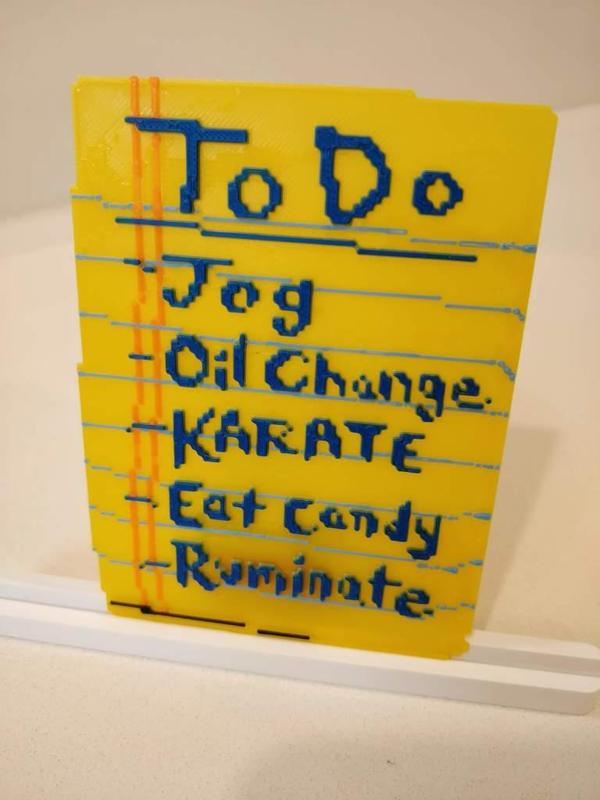 To Do
- Jog
- Oil Change.
- KARATE
- Eat Candy
- Ruminate